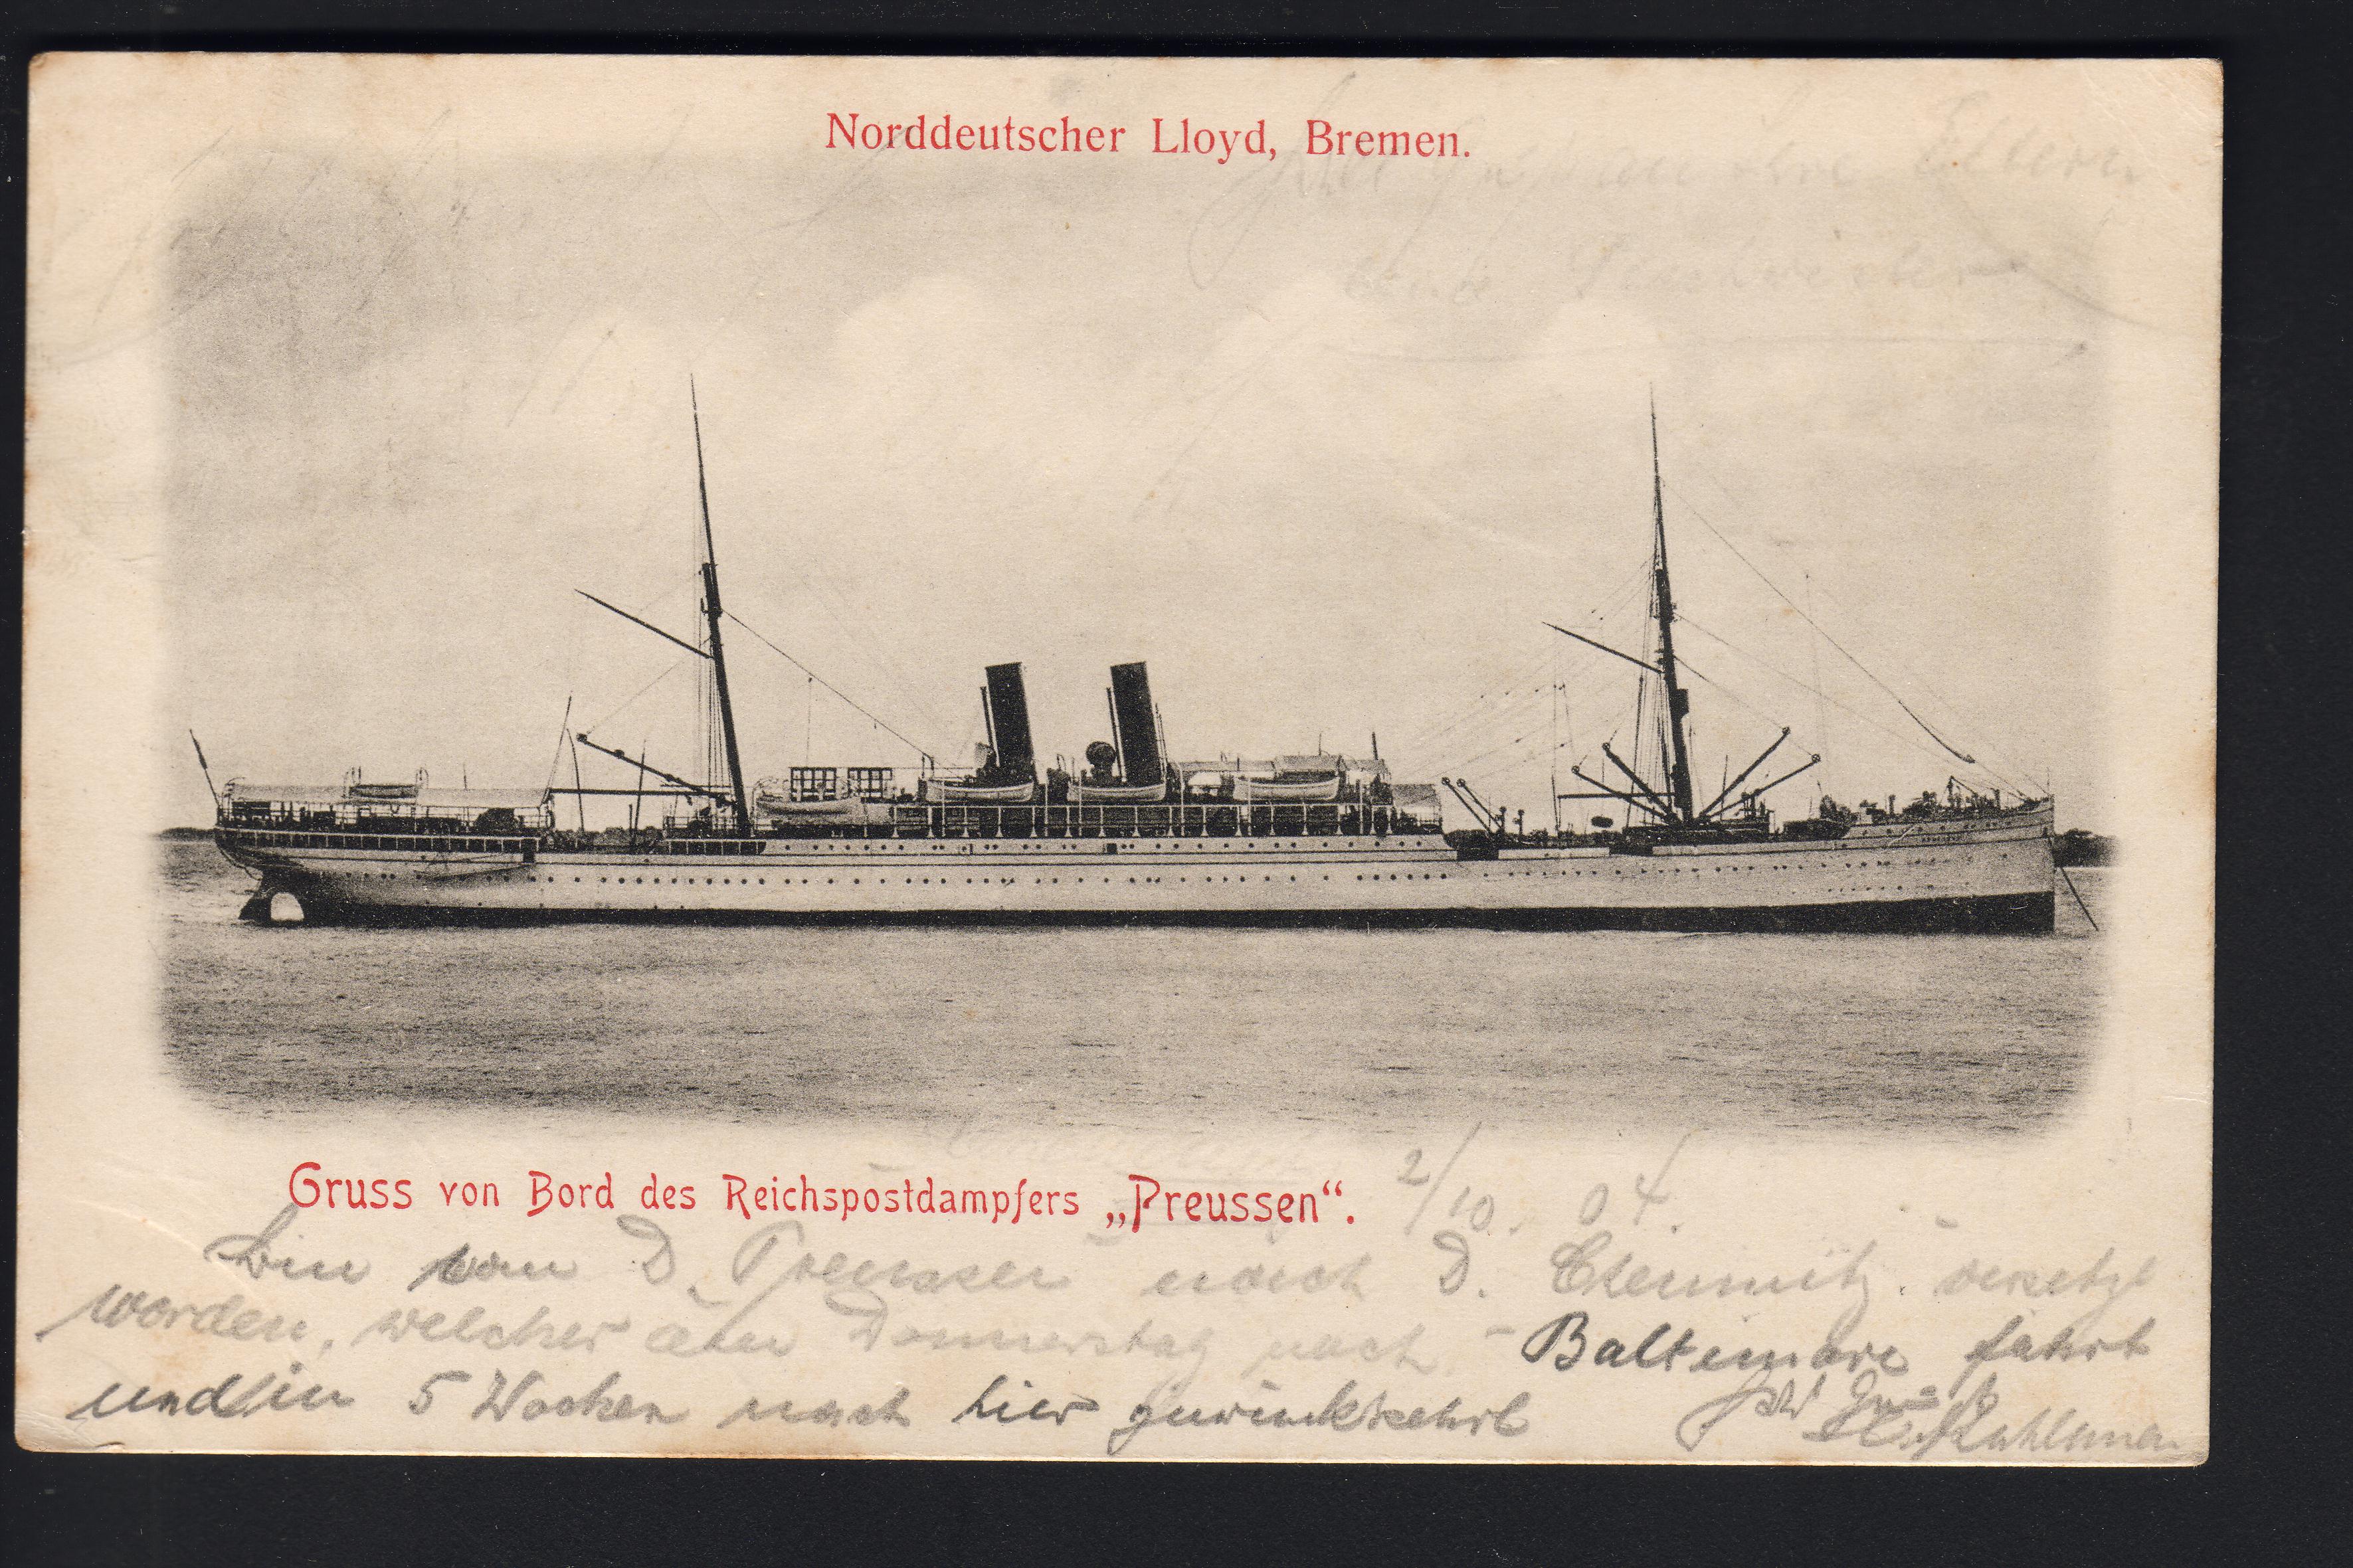 Norddeutscher Lloyd, Bremen.
Eltern
Gruss von Bord des Reichspostdampfers „Preussen“. 2/10. 04.
bin vom D. Preussen nach D. Chemnitz versetzt
worden, welcher am Donnerstag nach Baltimore fährt
und in 5 Wochen nach hier zurückkehrt
Gruß